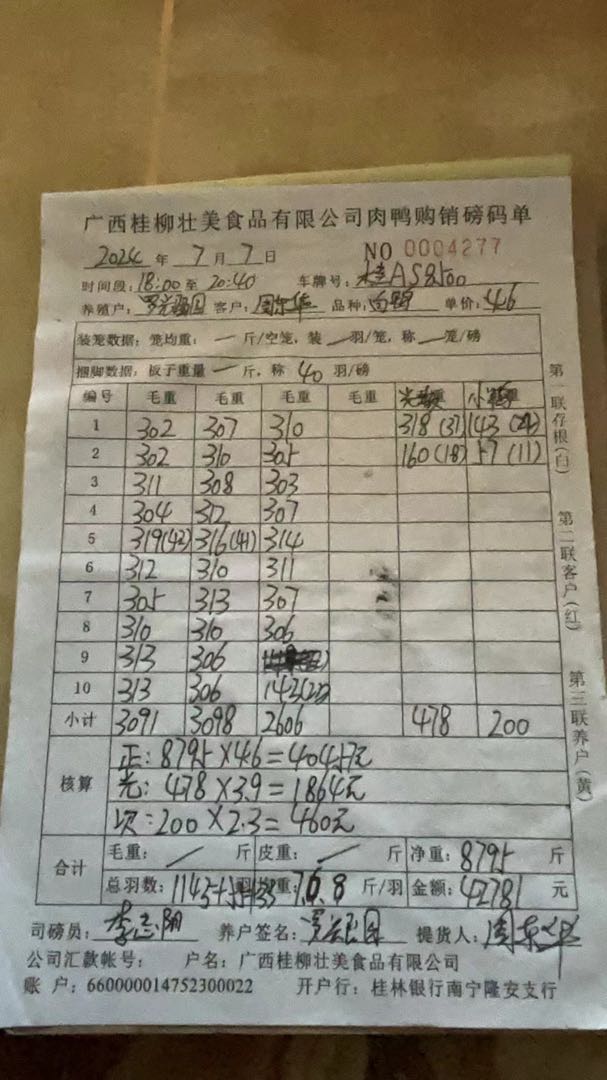 广西桂柳壮美食品有限公司肉鸭购销磅码单
2024 年 7 月 7 日 NO 0004277
时间段: 18:00 至 20:40 车牌号: 桂AS8500
养殖户: 客户: 周东华 品种: 白鸭 单价: 4.6
装笼数据: 笼均重: — 斤/空笼, 装 — 羽/笼, 称 — 笼/磅
捆脚数据: 板子重量 — 斤, 称 40 羽/磅
编号 毛重 毛重 毛重 毛重
1 302 307 310 318 (37) 143 (24)
2 302 310 305 160 (18) 57 (11)
3 311 308 303
4 304 312 307
5 319(42) 316(41) 314
6 312 310 311
7 305 313 307
8 310 310 306
9 313 306
10 313 306 142(22)
小计 3091 3098 2606 478 200
核算 正: 8795 X 4.6 = 40457元
光: 478 X 3.9 = 1864元
次: 200 X 2.3 = 460元
合计 毛重: / 斤 皮重: / 斤 净重: 8795 斤
总羽数: 重: 斤/羽 金额: 42781 元
司磅员: 李志阳 养户签名: 提货人: 周东华
公司汇款帐号: 户名: 广西桂柳壮美食品有限公司
账 户: 660000014752300022 开户行: 桂林银行南宁隆安支行
第一联存根(白)
第二联客户(红)
第三联养户(黄)